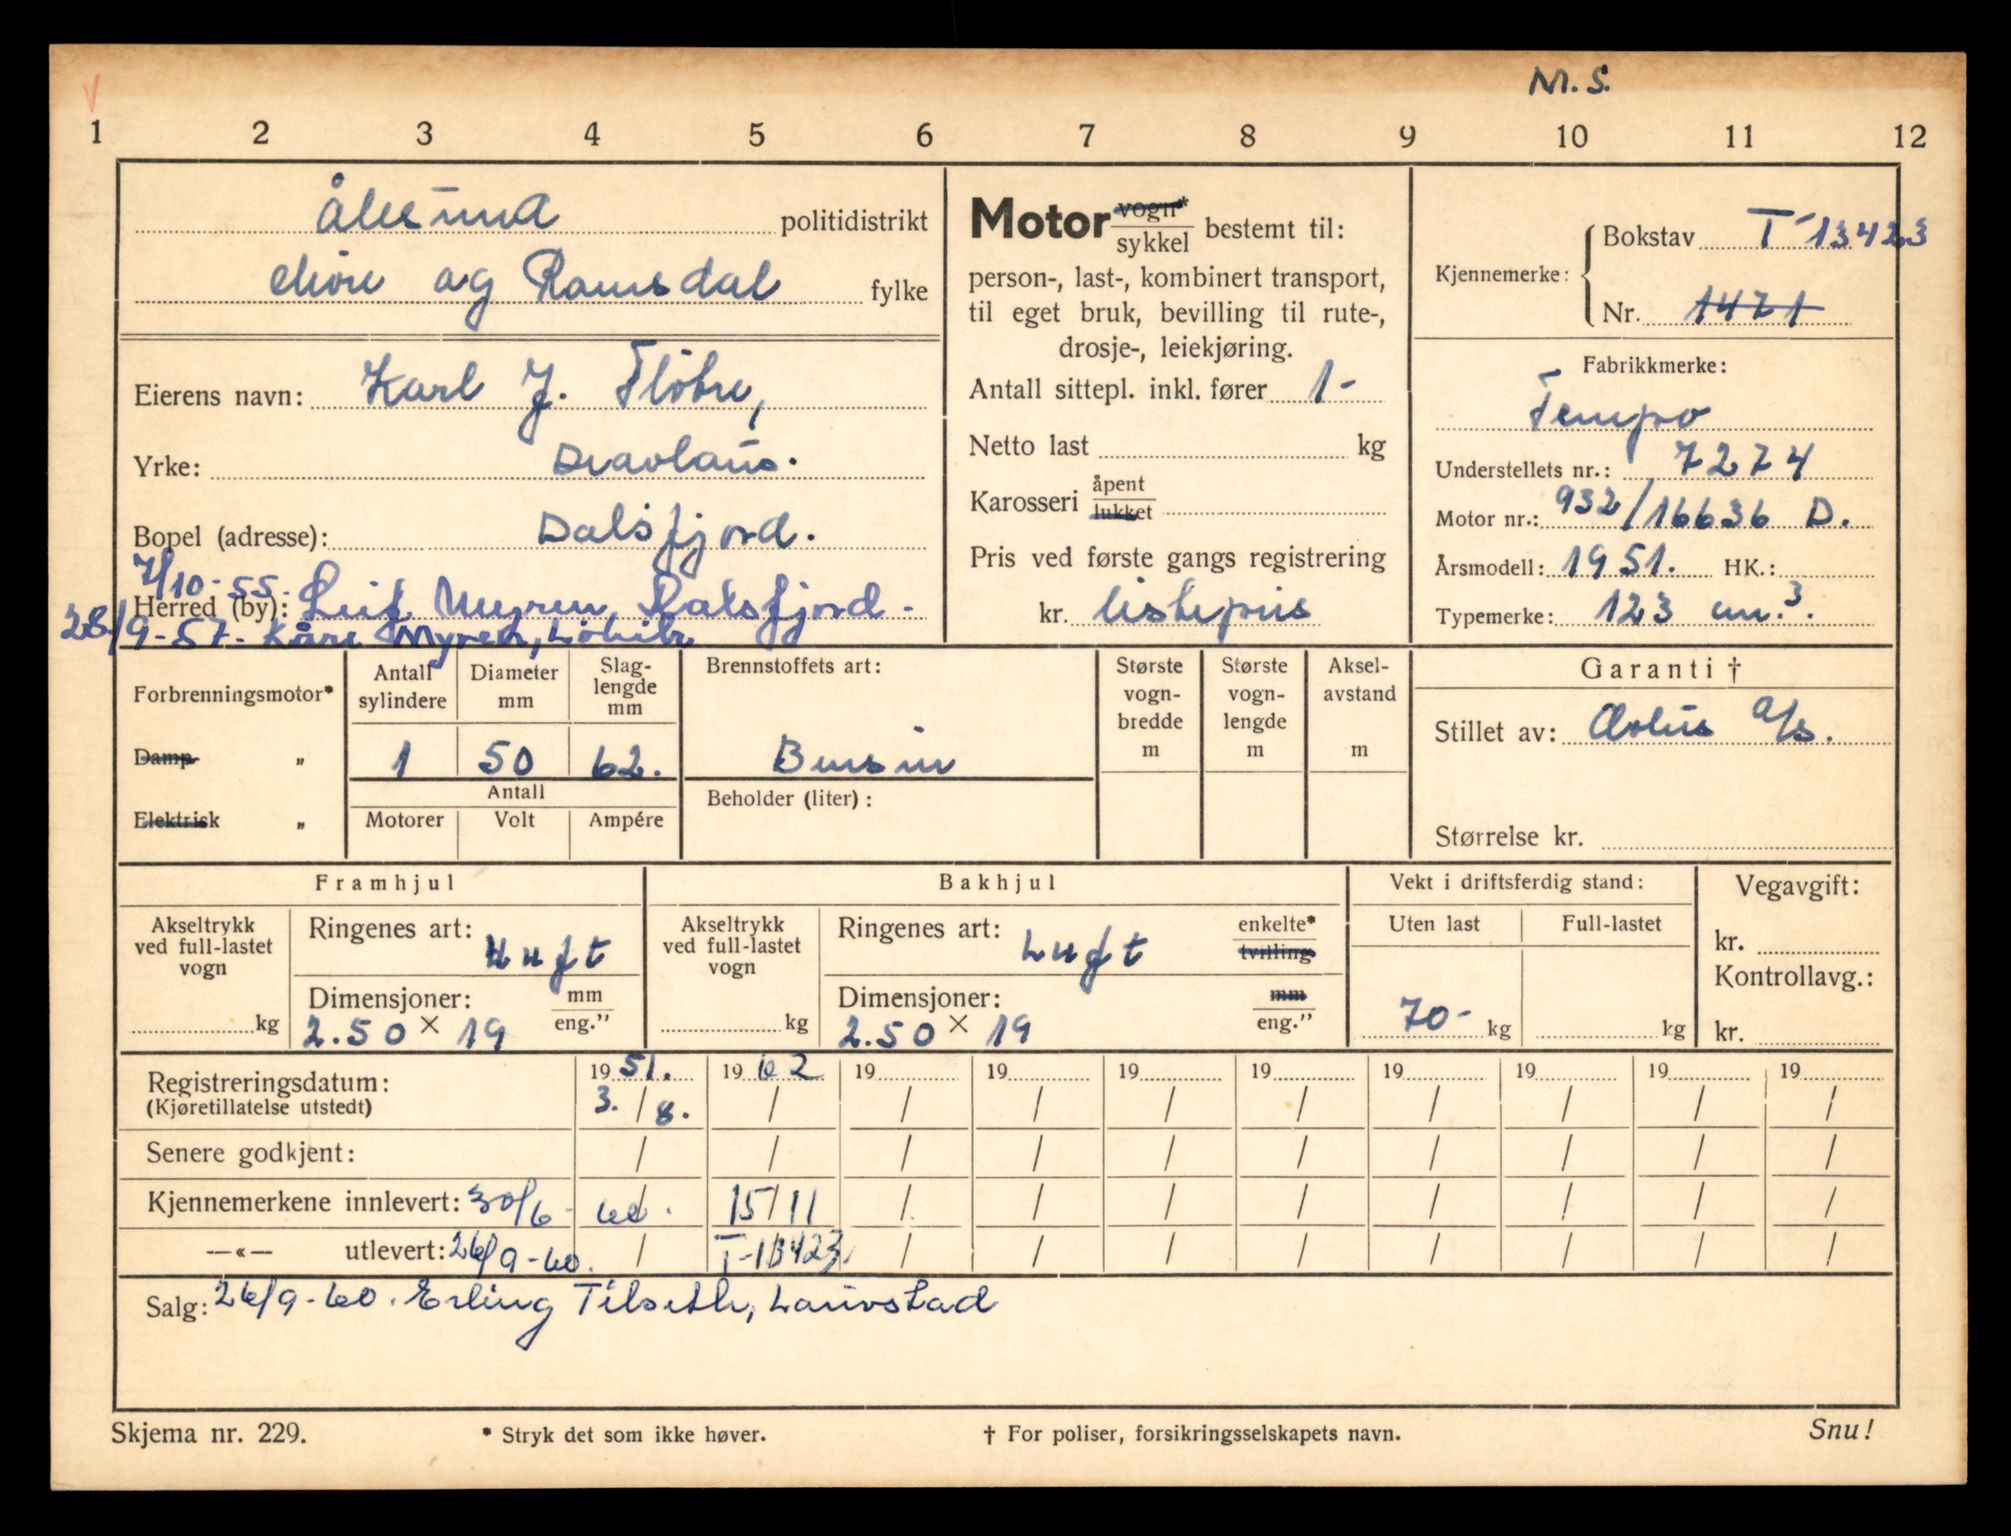 M. S.
1 2 3 4 5 6 7 8 9 10 11 12
Ålesund politidistrikt
Møre og Romsdal fylke
Eierens navn: Karl J. Fløtre,
Yrke: Dravlaus.
Bopel (adresse): Dalsfjord.
7/10-55. Leif Myren, Dalsfjord -
Herred (by):
28/9-57. Kåre Myren,
Motor vogn* / sykkel bestemt til:
person-, last-, kombinert transport,
til eget bruk, bevilling til rute-,
drosje-, leiekjøring.
Antall sittepl. inkl. fører 1-
Netto last kg
Karosseri åpent / lukket
Pris ved første gangs registrering
kr. listepris
Kjennemerke: Bokstav T-13423
Nr. 1471
Fabrikkmerke:
Tempo
Understellets nr.: 7274
Motor nr.: 932/16636 D.
Årsmodell: 1951. HK.:
Typemerke: 123 cm.³.
Forbrenningsmotor*
Damp „
Elektrisk „
Antall sylindere Diameter mm Slag-lengde mm
1 50 62.
Antall
Motorer Volt Ampére
Brennstoffets art:
Bensin
Beholder (liter):
Største vogn-bredde m
Største vogn-lengde m
Aksel-avstand m
Garanti †
Stillet av: Æolus a/s.
Størrelse kr.
Framhjul
Akseltrykk ved full-lastet vogn
kg
Ringenes art: Luft
Dimensjoner: mm / eng.”
2.50 × 19
Bakhjul
Akseltrykk ved full-lastet vogn
kg
Ringenes art: Luft enkelte* / tvilling
Dimensjoner: mm / eng.”
2.50 × 19
Vekt i driftsferdig stand:
Uten last Full-lastet
70- kg kg
Vegavgift:
kr.
Kontrollavg.:
kr.
Registreringsdatum: 1951. 1962 19 19 19 19 19 19 19 19
(Kjøretillatelse utstedt) 3. / 8. / / / / / / / / /
Senere godkjent: / / / / / / / / / /
Kjennemerkene innlevert: 30/6-60. 15/11 / / / / / / / /
—«— utlevert: 26/9-60. / T-13423 / / / / / / / /
Salg: 26/9-60. Erling Tilseth, Lauvstad
Skjema nr. 229. * Stryk det som ikke høver. † For poliser, forsikringsselskapets navn. Snu!